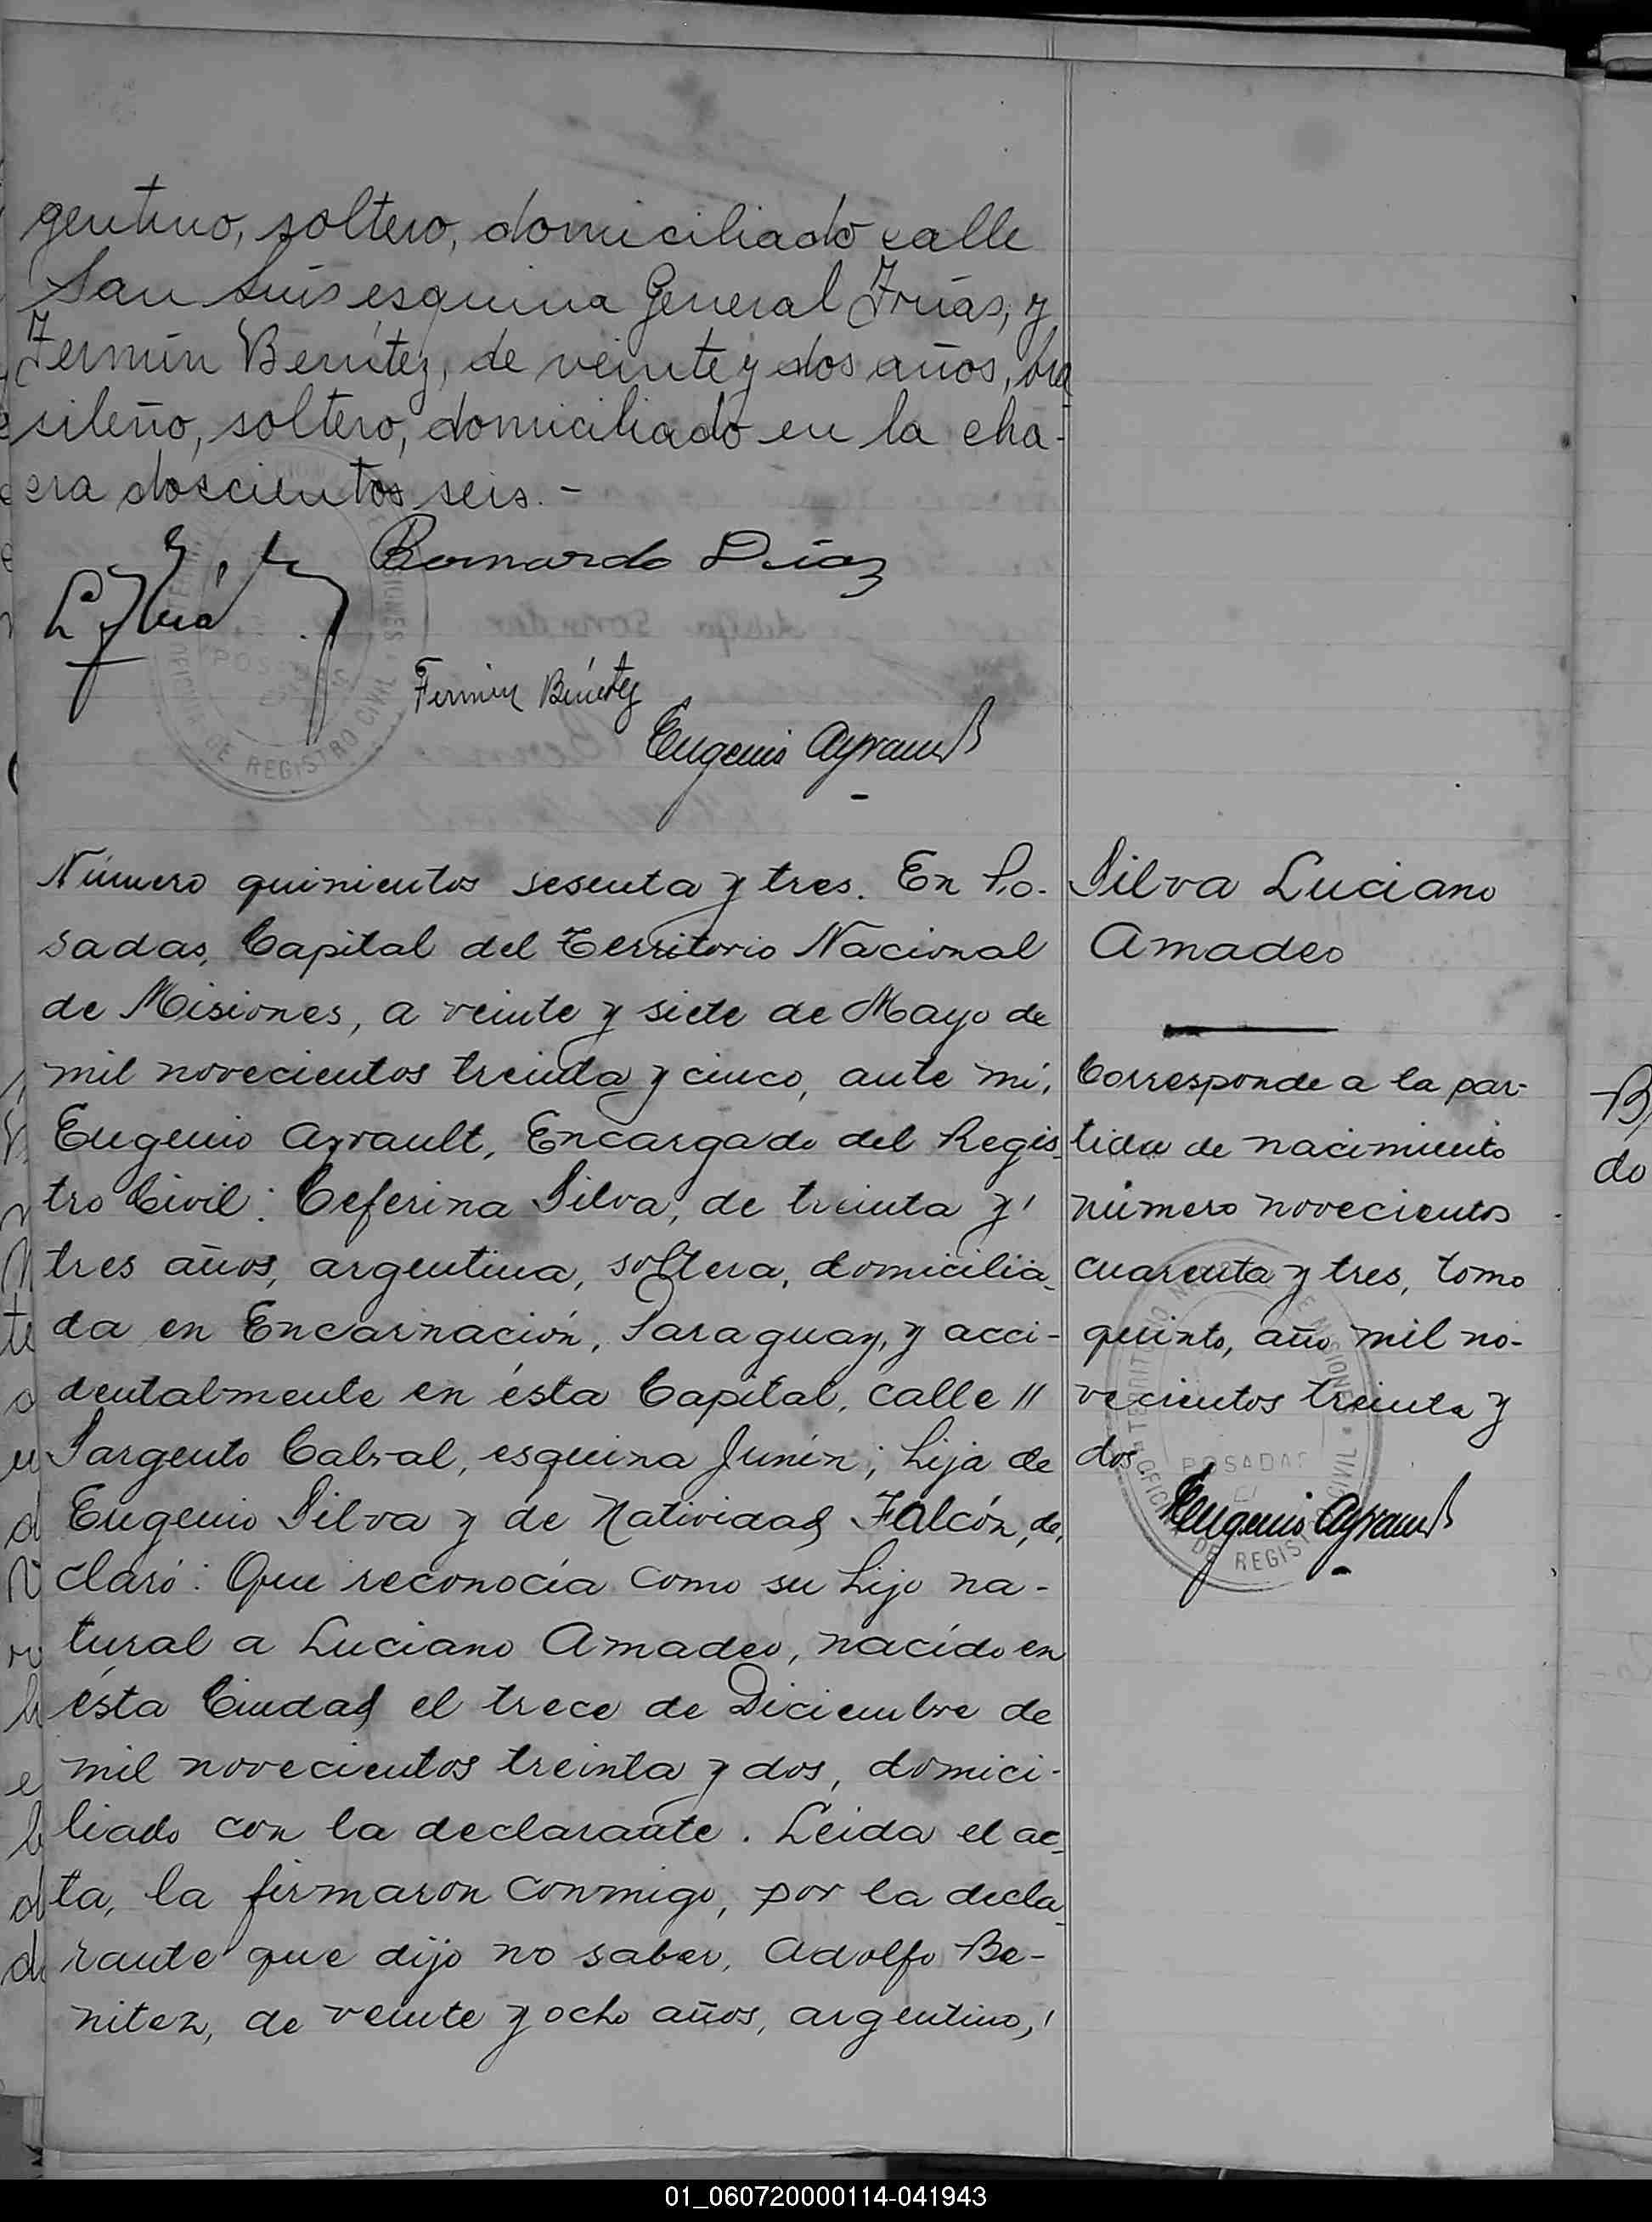 gentino, soltero, domiciliado calle
San Luis esquina General Frías, y
Fermín Benítez, de veinte y dos años, bra
sileño, soltero, domiciliado en la cha-
cra doscientos seis. -
Bernardo Díaz
Fermin Benítez
Eugenio Ayrault
POSADAS
OFICINA DE REGISTRO CIVIL
Número quinientos sesenta y tres. En Po-
sadas, Capital del Territorio Nacional
de Misiones, a veinte y siete de Mayo de
mil novecientos treinta y cinco, ante mí,
Eugenio Ayrault, Encargado del Regis-
tro Civil: Ceferina Silva, de treinta y
tres años, argentina, soltera, domicilia-
da en Encarnación, Paraguay, y acci-
dentalmente en ésta Capital, calle "
Sargento Cabral, esquina Junín; hija de
Eugenio Silva y de Natividad Falcón, de-
claró: Que reconocía como su hijo na-
tural a Luciano Amadeo, nacido en
ésta Ciudad el trece de Diciembre de
mil novecientos treinta y dos, domici-
liado con la declarante. Leida el ac-
ta, la firmaron conmigo, por la decla-
rante que dijo no saber, Adolfo Be-
nitez, de veinte y ocho años, argentino,
Silva Luciano
Amadeo
Corresponde a la par-
tida de nacimiento
número novecientos
cuarenta y tres, tomo
quinto, año mil no-
vecientos treinta y
dos.
Eugenio Ayrault
TERRITORIO NACIONAL DE MISIONES
POSADAS
OFICINA DE REGISTRO CIVIL
do
01_060720000114-041943